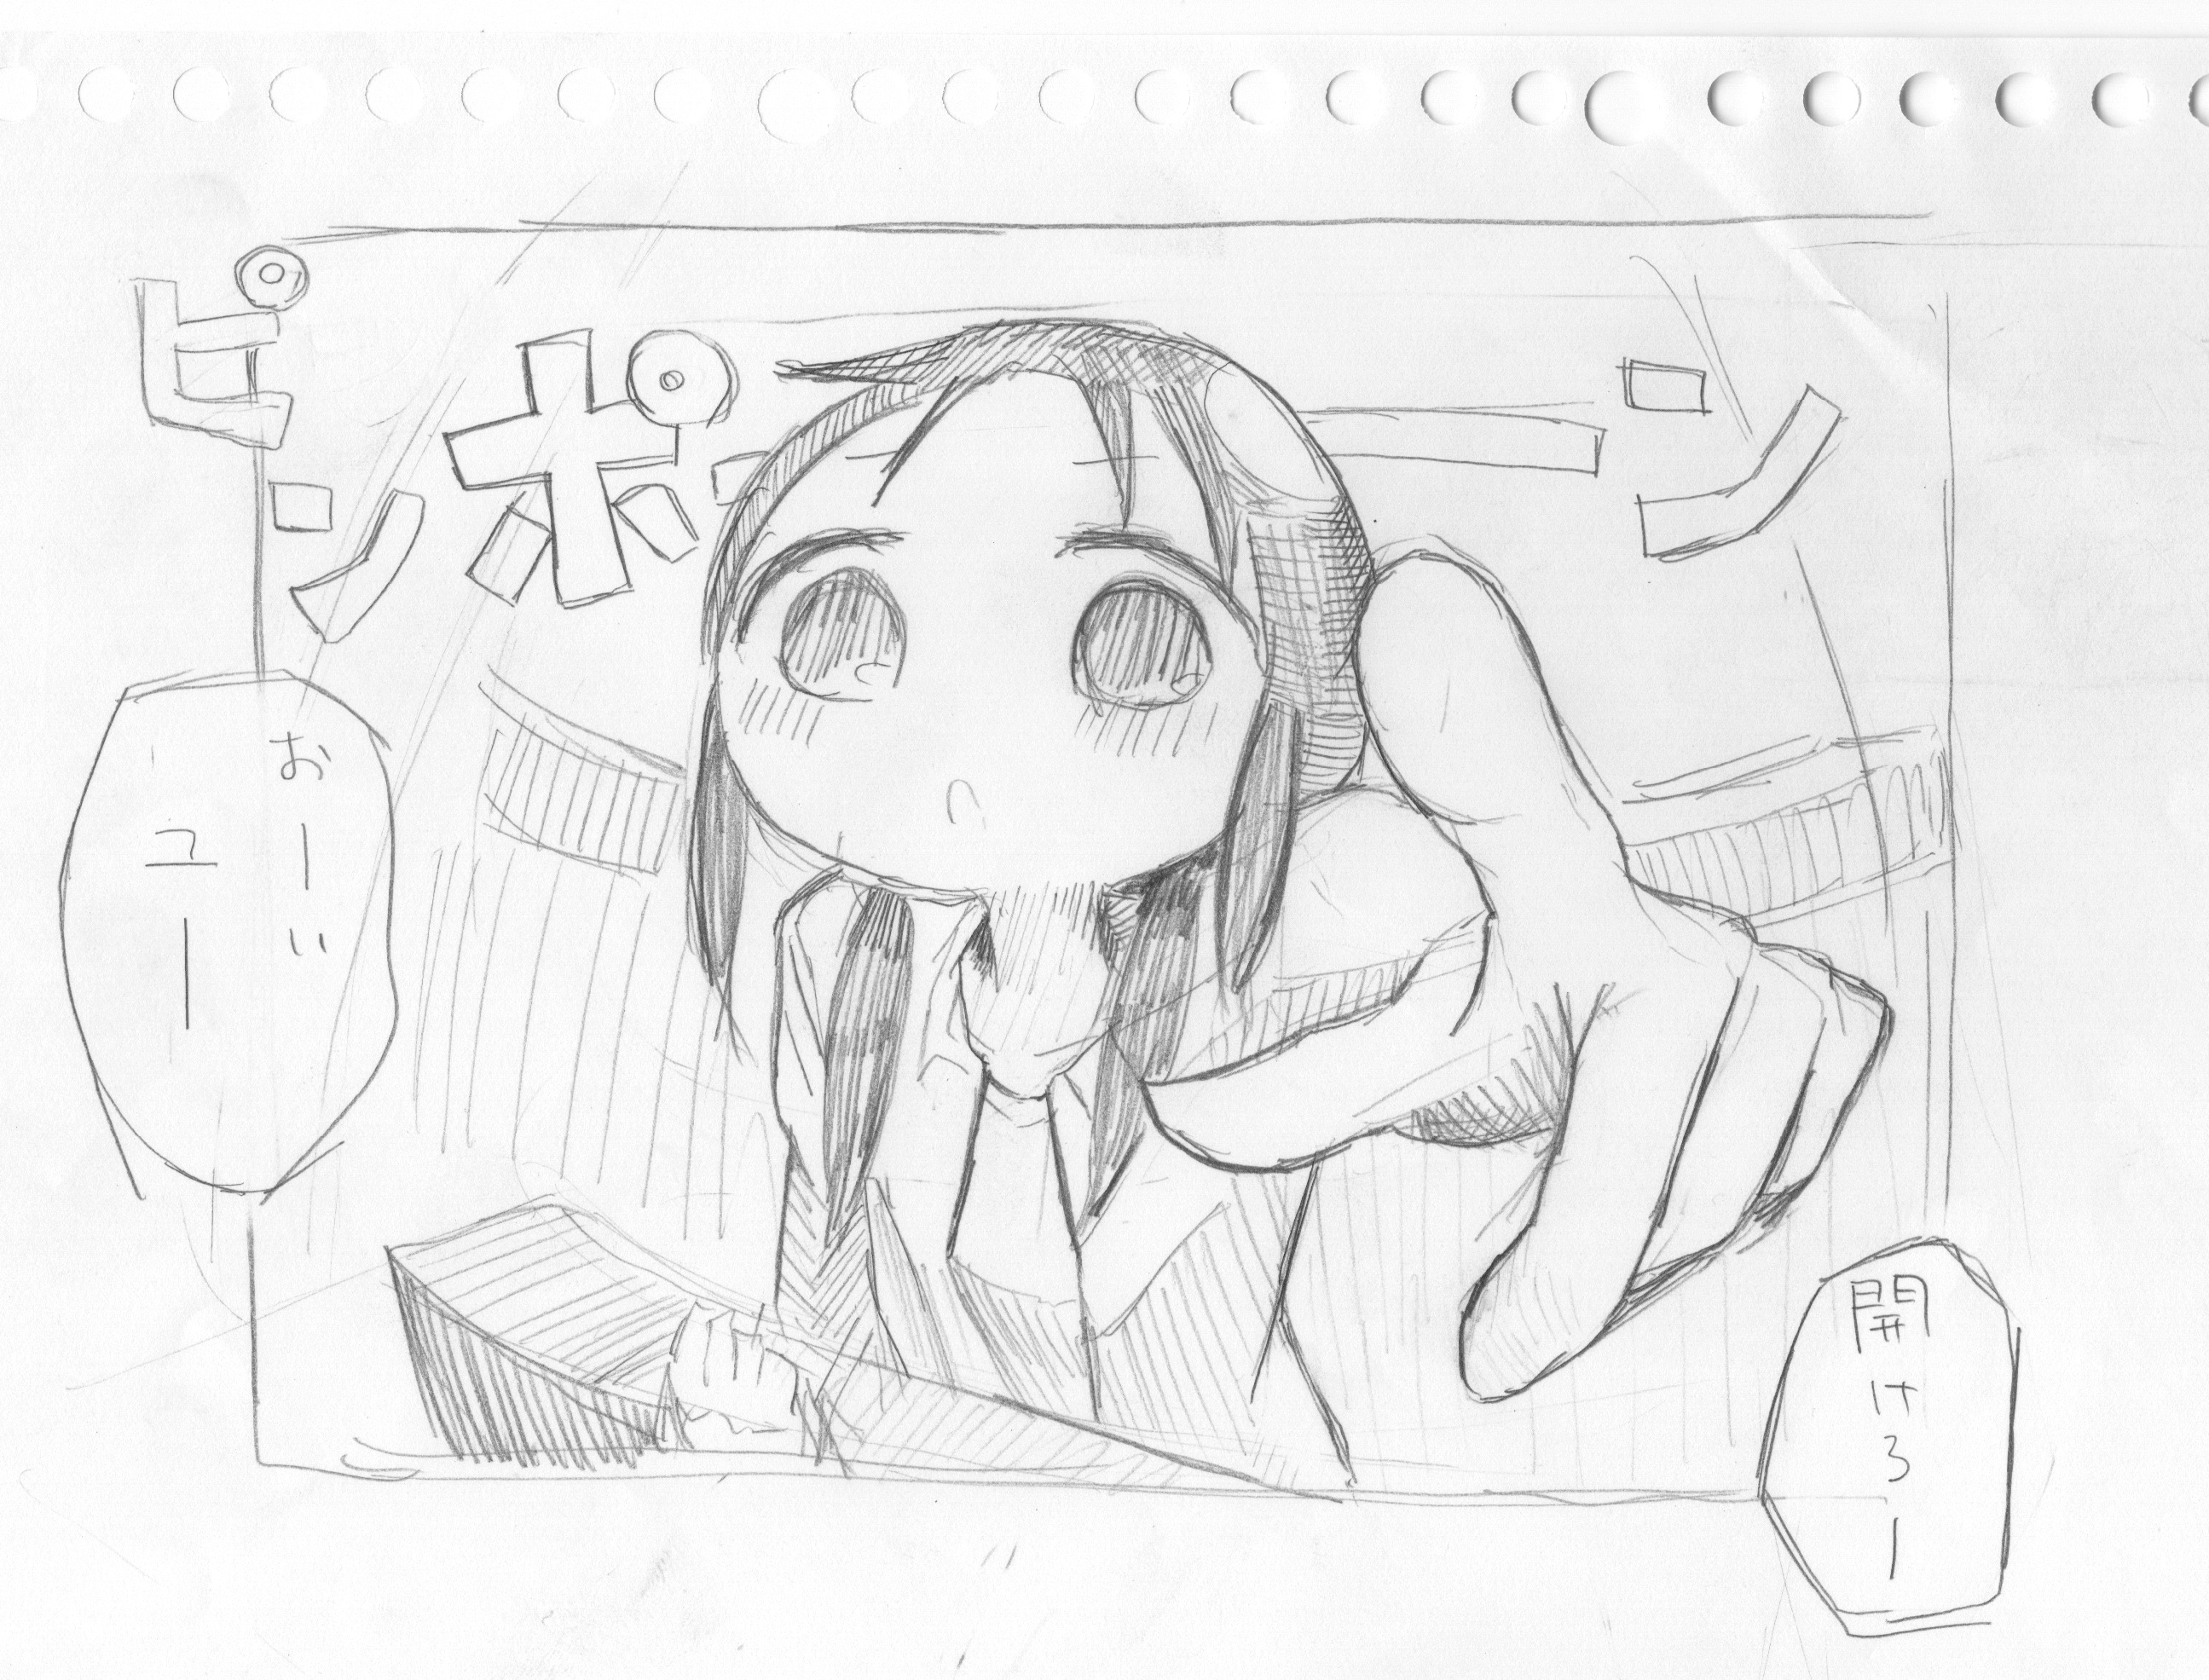 ピンポーン
おーい
ユー
開けろー